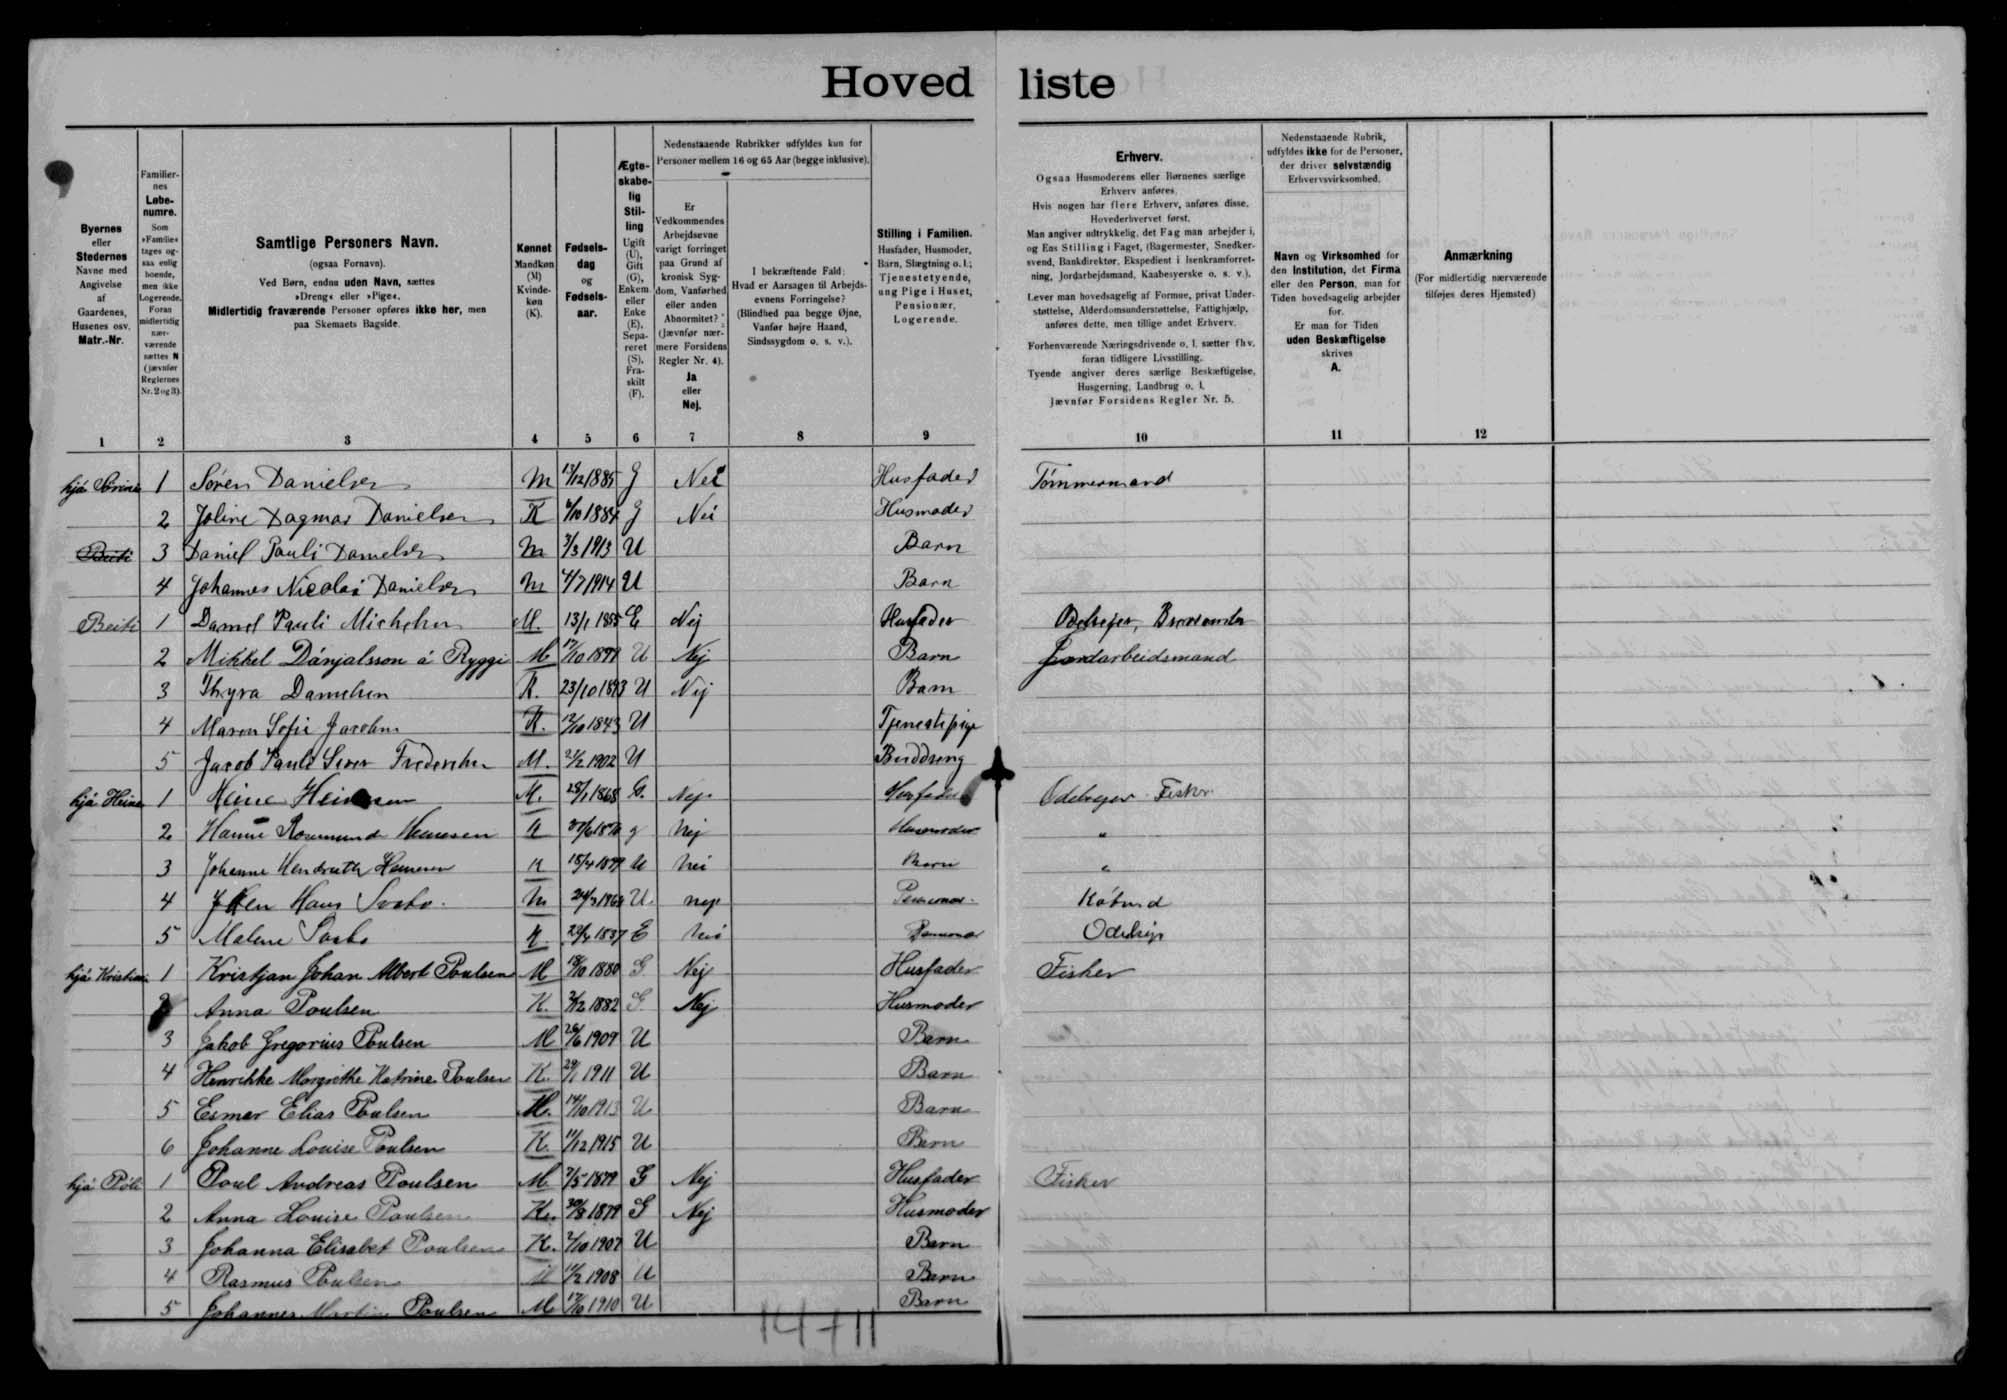 Hovedliste
Byernes eller Stedernes Navne med Angivelse af Gaardenes, Husenes osv. Matr.-Nr.
Familiernes Løbenumre. Som »Familie« tages ogsaa enlig boende, men ikke Logerende. Foran midlertidig nærværende sættes N (jævnfør Reglernes Nr. 2 og 3).
Samtlige Personers Navn. (ogsaa Fornavn). Ved Børn, endnu uden Navn, sættes »Dreng« eller »Pige«. Midlertidig fraværende Personer opføres ikke her, men paa Skemaets Bagside.
Kønnet Mandkøn (M) Kvindekøn (K).
Fødselsdag og Fødselsaar.
Ægteskabelig Stilling Ugift (U), Gift (G), Enkem. eller Enke (E), Separeret (S), Fraskilt (F).
Nedenstaaende Rubrikker udfyldes kun for Personer mellem 16 og 65 Aar (begge inklusive).
Er Vedkommendes Arbejdsevne varigt forringet paa Grund af kronisk Sygdom, Vanførhed eller anden Abnormitet? (Jævnfør nærmere Forsidens Regler Nr. 4). Ja eller Nej.
I bekræftende Fald: Hvad er Aarsagen til Arbejdsevnens Forringelse? (Blindhed paa begge Øjne, Vanfør højre Haand, Sindssygdom o. s. v.).
Stilling i Familien. Husfader, Husmoder, Barn, Slægtning o. l.; Tjenestetyende, ung Pige i Huset, Pensionær, Logerende.
Erhverv.
Ogsaa Husmoderens eller Børnenes særlige Erhverv anføres.
Hvis nogen har flere Erhverv, anføres disse, Hovederhvervet først.
Man angiver udtrykkelig, det Fag man arbejder i, og Ens Stilling i Faget, (Bagermester, Snedkersvend, Bankdirektør, Ekspedient i Isenkramforretning, Jordarbejdsmand, Kaabesyerske o. s. v.).
Lever man hovedsagelig af Formue, privat Understøttelse, Alderdomsunderstøttelse, Fattighjælp, anføres dette, men tillige andet Erhverv.
Forhenværende Næringsdrivende o. l. sætter fhv. foran tidligere Livsstilling.
Tyende angiver deres særlige Beskæftigelse, Husgerning, Landbrug o. l.
Jævnfør Forsidens Regler Nr. 5.
Nedenstaaende Rubrik, udfyldes ikke for de Personer, der driver selvstændig Erhvervsvirksomhed.
Navn og Virksomhed for den Institution, det Firma eller den Person, man for Tiden hovedsagelig arbejder for.
Er man for Tiden uden Beskæftigelse skrives A.
Anmærkning (For midlertidig nærværende tilføjes deres Hjemsted)
1 2 3 4 5 6 7 8 9 10 11 12
hjá Sørine 1 Søren Danielsen M 13/12 1885 G Nei Husfader Tømmermand
2 Joline Dagmar Danielsen K /10 1884 G Nei Husmoder
3 Daniel Pauli Danielsen M 3/3 1913 U Barn
4 Johannes Nicolai Danielsen M 4/7 1914 U Barn
Beiti 1 Daniel Pauli Michelsen M. 13/1 1855 E Nej Husfader Odelsejer,
2 Mikkel Dánjalsson á Ryggi M 17/10 1879 U Nej Barn Jordarbeidsmand
3 Thyra Danielsen K. 23/10 1893 U Nej Barn
4 Maren Sofie Jacobsen K. 12/10 1843 U Tjenestepige
5 Jacob Pauli Frederiksen M. 2/2 1902 U
hjá Heina 1 Heine Heinesen M. 28/1 1868 G. Nej Husfader Odelsejer Fisker
2 Hanne Rosemunde Heinesen K G Nej Husmoder "
3 Johanne Hendrikke Heinesen K 18/4 1899 U Nei Barn "
4 Hans M U. nej Pensioner
5 Malene K. 1837 E Nei Odelsejer
hjá Kristian 1 Kristjan Johan Albert Poulsen M 18/10 1880 G Nej Husfader Fisker
2 Anna Poulsen K. 2/12 1882 G. Nej Husmoder
3 Jakob Gregorius Poulsen M 26/6 1909 U Barn
4 Henrikke Margrethe Katrine Poulsen K. 29/1 1911 U Barn
5 Esmar Elias Poulsen M. 14/10 1913 U Barn
6 Johanne Louise Poulsen K. 11/12 1915 U Barn
hjá Póli 1 Poul Andreas Poulsen M 7/5 1879 G Nej Husfader Fisker
2 Anna Louise Poulsen K. 30/8 1879 G Nej Husmoder
3 Johanna Elisabet Poulsen K. 2/10 1907 U Barn
4 Rasmus Poulsen M 11/2 1908 U Barn
5 Johannes Martin Poulsen M 17/10 1910 U Barn
14+11